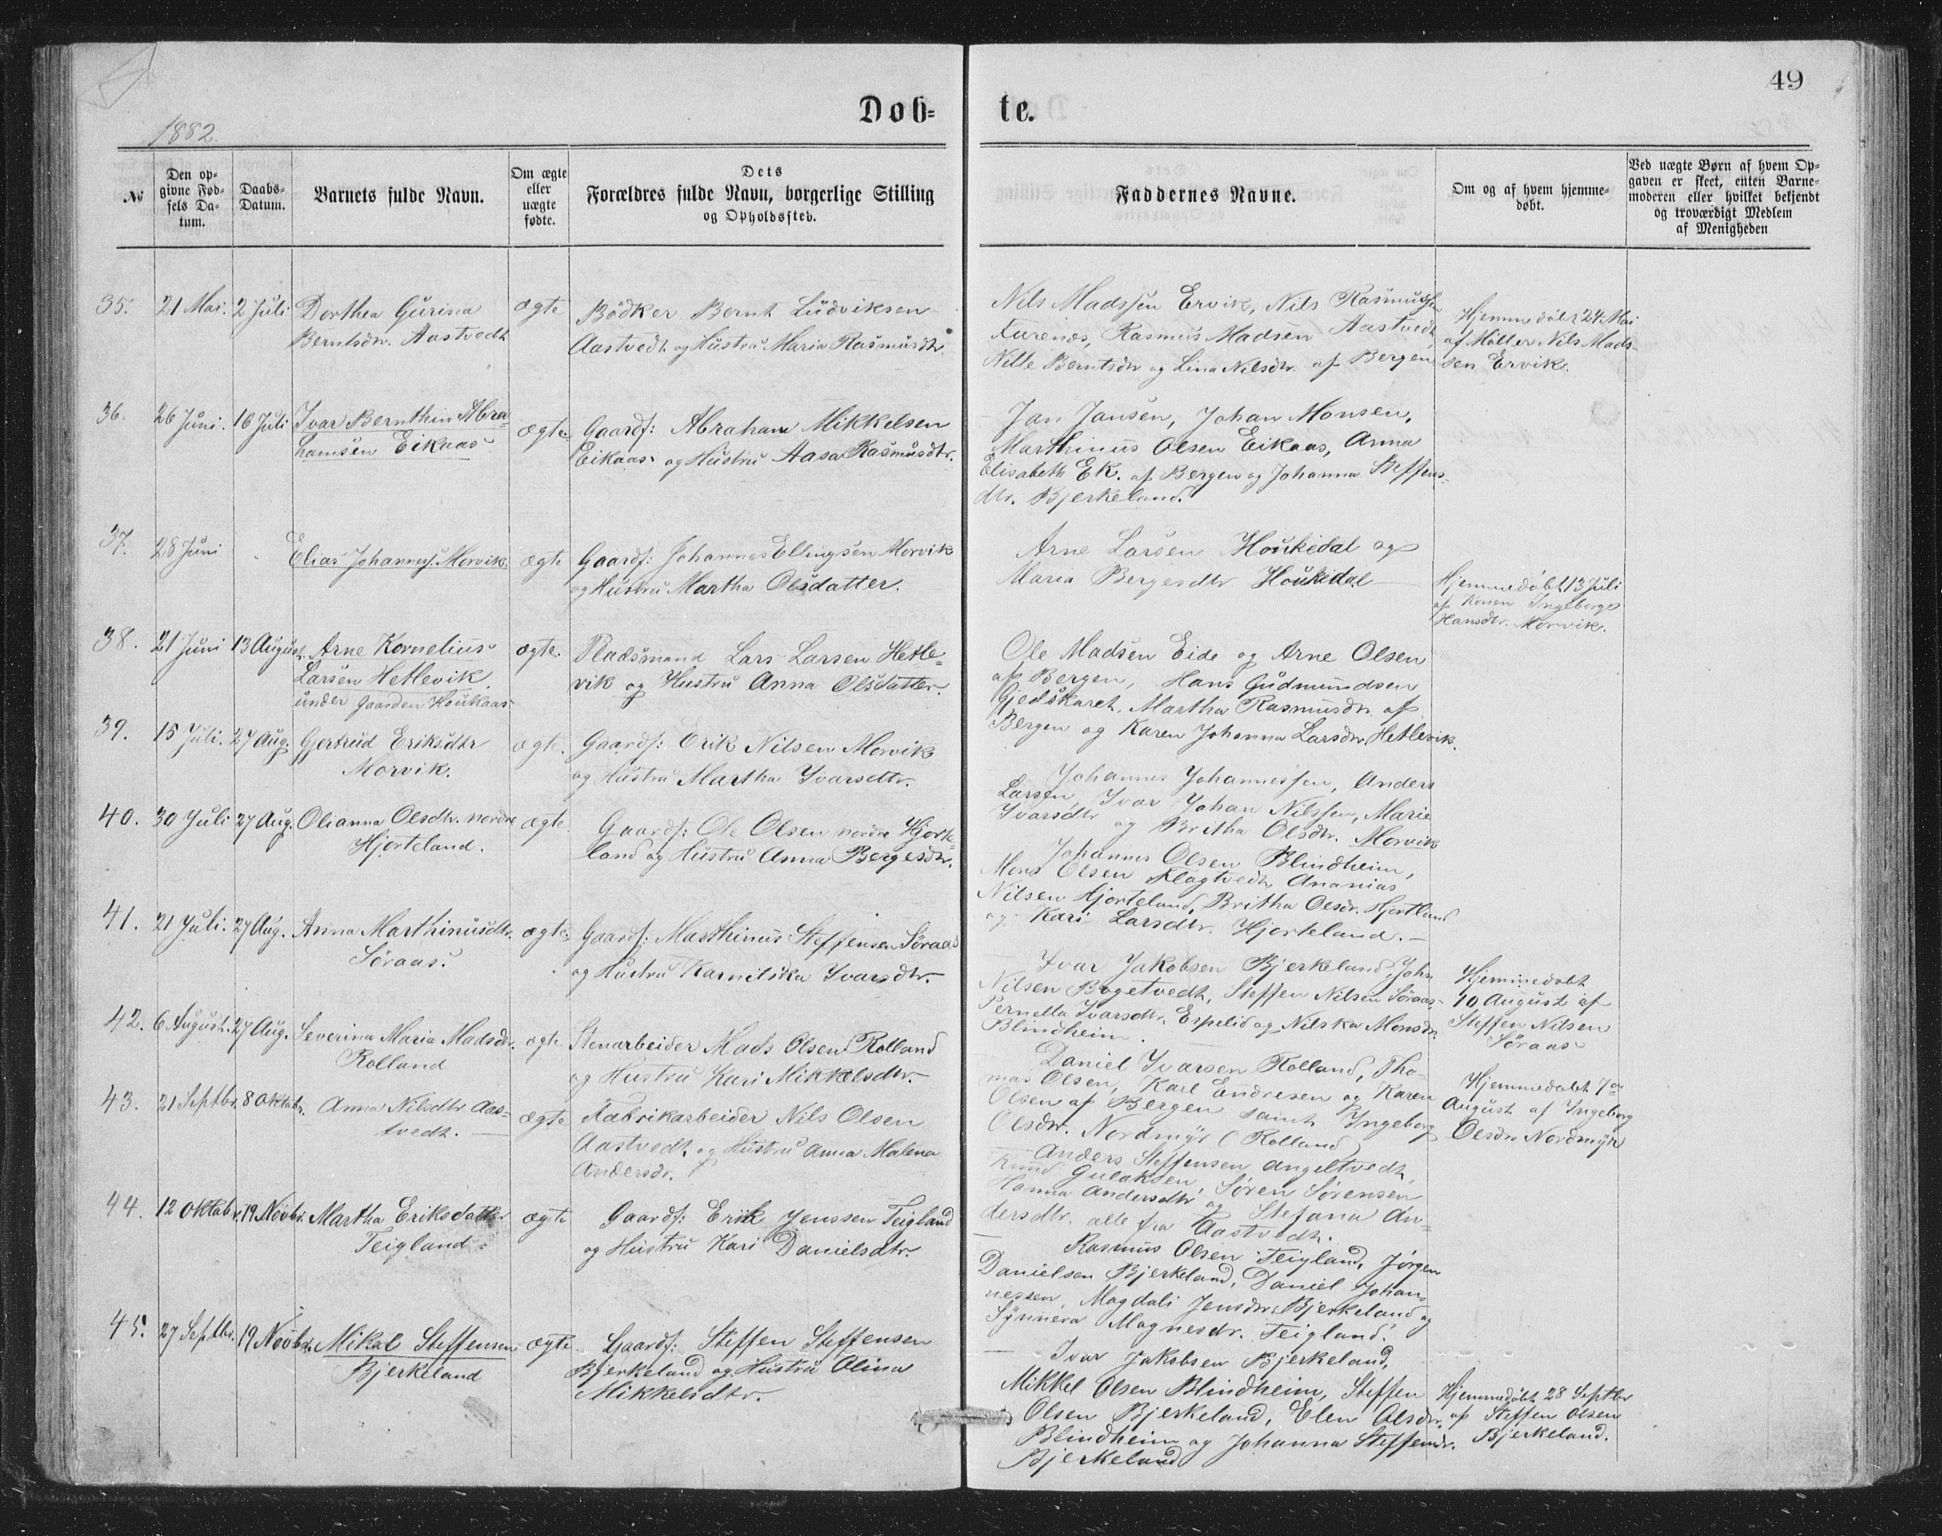 49
Døb-
te.
1882.
№
Den op-
givne Fød-
sels Da-
tum.
Daabs-
Datum.
Barnets fulde Navn.
Om ægte
eller
uægte
fødte.
Dets
Forældres fulde Navn, borgerlige Stilling
og Opholdssted.
Faddernes Navne.
Om og af hvem hjemme-
døbt.
Ved uægte Børn af hvem Op-
gaven er skeet, enten Barne-
moderen eller hvilket bekjendt
og troværdigt Medlem
af Menigheden
35. 21 Mai. 2 Juli Dorthea Gurina
Berntsdtr. Aastvedt
ægte
Bödker Bernt Ludviksen
Aastvedt og Hustru Maria Rasmusdtr.
Nils Madssen Ervik, Nils Rasmussen
Rasmus Madsen Aastvedt,
Nille Berntsdtr og Lina Nilsdtr. af Bergen
Hjemmedøbt 24 Mai
af Möller Nils Mads-
sen Ervik.
36. 26 Juni. 16 Juli Ivar Bernthin Abra-
hamsen Eikaas
ægte
Gaardf: Abraham Mikkelsen
Eikaas og Hustru Aasa Rasmusdtr.
Jan Jansen, Johan Monsen,
Marthinus Olsen Eikaas, Anna
Elisabeth Ek. af Bergen og Johanna Steffens-
dtr. Bjerkeland.
37. 28 Juni
Elias Johannes. Morvik.
ægte
Gaardf: Johannes Ellingsen Morvik
og Hustru Martha Olsdatter.
Arne Larsen Houkedal og
Maria Bergesdtr Houkedal
Hjemmedøbt 13 Juli
af Konen Ingeborg
Hansdtr. Morvik.
38. 21 Juni 13 August. Arne Kornelius
Larsen Hetlevik
under Gaarden Houkaas
ægte.
Pladsmand Lars Larsen Hetle-
vik og Hustru Anna Olsdatter.
Ole Madsen Eide og Arne Olsen
af Bergen, Hans Gudmundsen
Gjedskaret, Martha Rasmusdtr. af
Bergen og Karen Johanna Larsdtr. Hetlevik.
39. 15 Juli. 27 Aug. Gjertrud Eriksdtr
Morvik.
ægte.
Gaardf: Erik Nilsen Morvik
og Hustru Martha Ivarsdtr.
Johannes Johannessen, Anders
Larsen, Ivar Johan Nilssen, Marie
Ivarsdtr og Britha Olsdtr. Morvik
40. 30 Juli 27 Aug. Olianna Olsdtr. nordre
Hjorteland.
ægte
Gaardf: Ole Olsen nordre Hjorte-
land og Hustru Anna Bergesdtr.
Johannes Olsen Blindheim,
Mons Olsen Flagtvedt, Ananias
Nilsen Hjorteland, Britha Olsdr. Hjortland
og Kari Larsdtr. Hjorteland.
41. 21 Juli. 27 Aug. Anna Marthinusdtr.
Søraas.
ægte
Gaardf: Marthinus Steffensen Søraas
og Hustru Karnitska Ivarsdtr.
Ivar Jakobsen Bjerkeland, John
Nilsen Bogetvedt, Steffen Nilsen Søraas
Pernella Ivarsdtr. Espelid og Nilska Monsdr.
Blindheim.
Hjemmedøbt
10 August af
Steffen Nilsen
Søraas
42. 6 August. 27 Aug. Severina Maria Madsdtr.
Rolland
ægte
Stenarbeider Mads Olsen Rolland
og Hustru Kari Mikkelsdtr.
Daniel Ivarsen Rolland, Tho-
mas Olsen, Karl Endresen og Karen
Olsen af Bergen samt Ingeborg
Olsdtr. Nordmyr (Rolland)
Hjemmedøbt 7de
August af Ingeborg
Olsdtr Nordmyr
43. 21 Septbr. 8 Oktobr. Anna Nilsdtr. Aas-
tvedt.
ægte
Fabrikarbeider Nils Olsen
Aastvedt, og Hustru Anna Malena
Andersdr.
Anders Steffensen Angeltvedt,
Knud Gulaksen, Søren Sørensen
Hanna Andersdtr og Stefana An-
dersdtr. alle fra Aastvedt.
44. 12 Oktobr. 19 Novbr. Martha Eriksdatter
Teigland.
ægte
Gaardf: Erik Jenssen Teigland
og Hustru Kari Danielsdtr.
Rasmus Olsen Teigland, Jørgen
Danielsen Bjerkeland, Daniel Johan-
nessen, Magdali Jensdtr. Bjerkeland og
Synneva Magnesdr. Teigland.
45. 27 Septbr. 19 Novbr. Mikal Steffensen
Bjerkeland
ægte
Gaardf: Steffen Steffensen
Bjerkeland og Hustru Olina
Mikkelsdtr.
Ivar Jakobsen Bjerkeland,
Mikkel Olsen Blindheim, Steffen
Olsen Bjerkeland, Elen Olsdr.
Blindheim og Johanna Steffensdr.
Bjerkeland
Hjemmedøbt 28 Septbr
af Steffen Olsen
Bjerkeland.